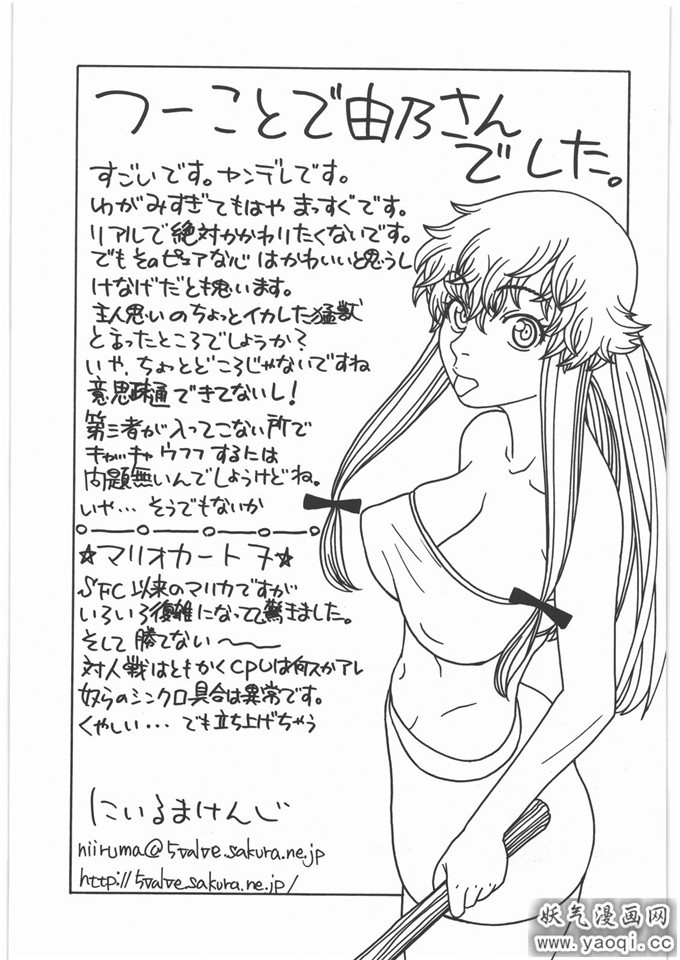 つーことで由乃さん
でした。
すごいです。ヤンデレです。
わがみすぎてもはや まっすぐです。
リアルで絶対かかわりたくないです。
でもそのピュアな心はかわいいと思うし
けなげだとも思います。
主人思いのちょっとイカした猛獣
と言ったところでしょうか?
いや、ちょっとどころじゃないですね
意思疎通できてないし!
第三者が入ってこない所で
キャッキャウフフするには
問題無いんでしょうけどね。
いや… そうでもないか
☆マリオカート7☆
SFC以来のマリカですが
いろいろ複雑になってて驚きました。
そして勝てない〜
対人戦はともかくCPUは何スかアレ
奴らのシンクロ具合は異常です。
くやしい… でも立ち上げちゃう
にいるまけんじ
niiruma@5valve.sakura.ne.jp
http://5valve.sakura.ne.jp/
妖气漫画网
www.yaoqi.cc